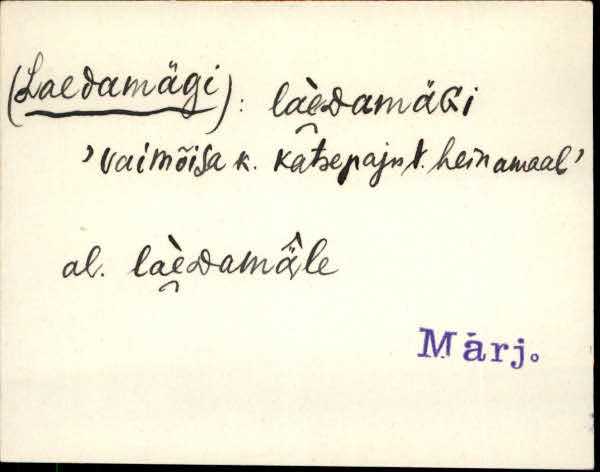 (Laedamägi): laèdamäGi
'Vaimõisa k. Katsepaju t. heinamaal'
al. laèdamä̀le
Märj.